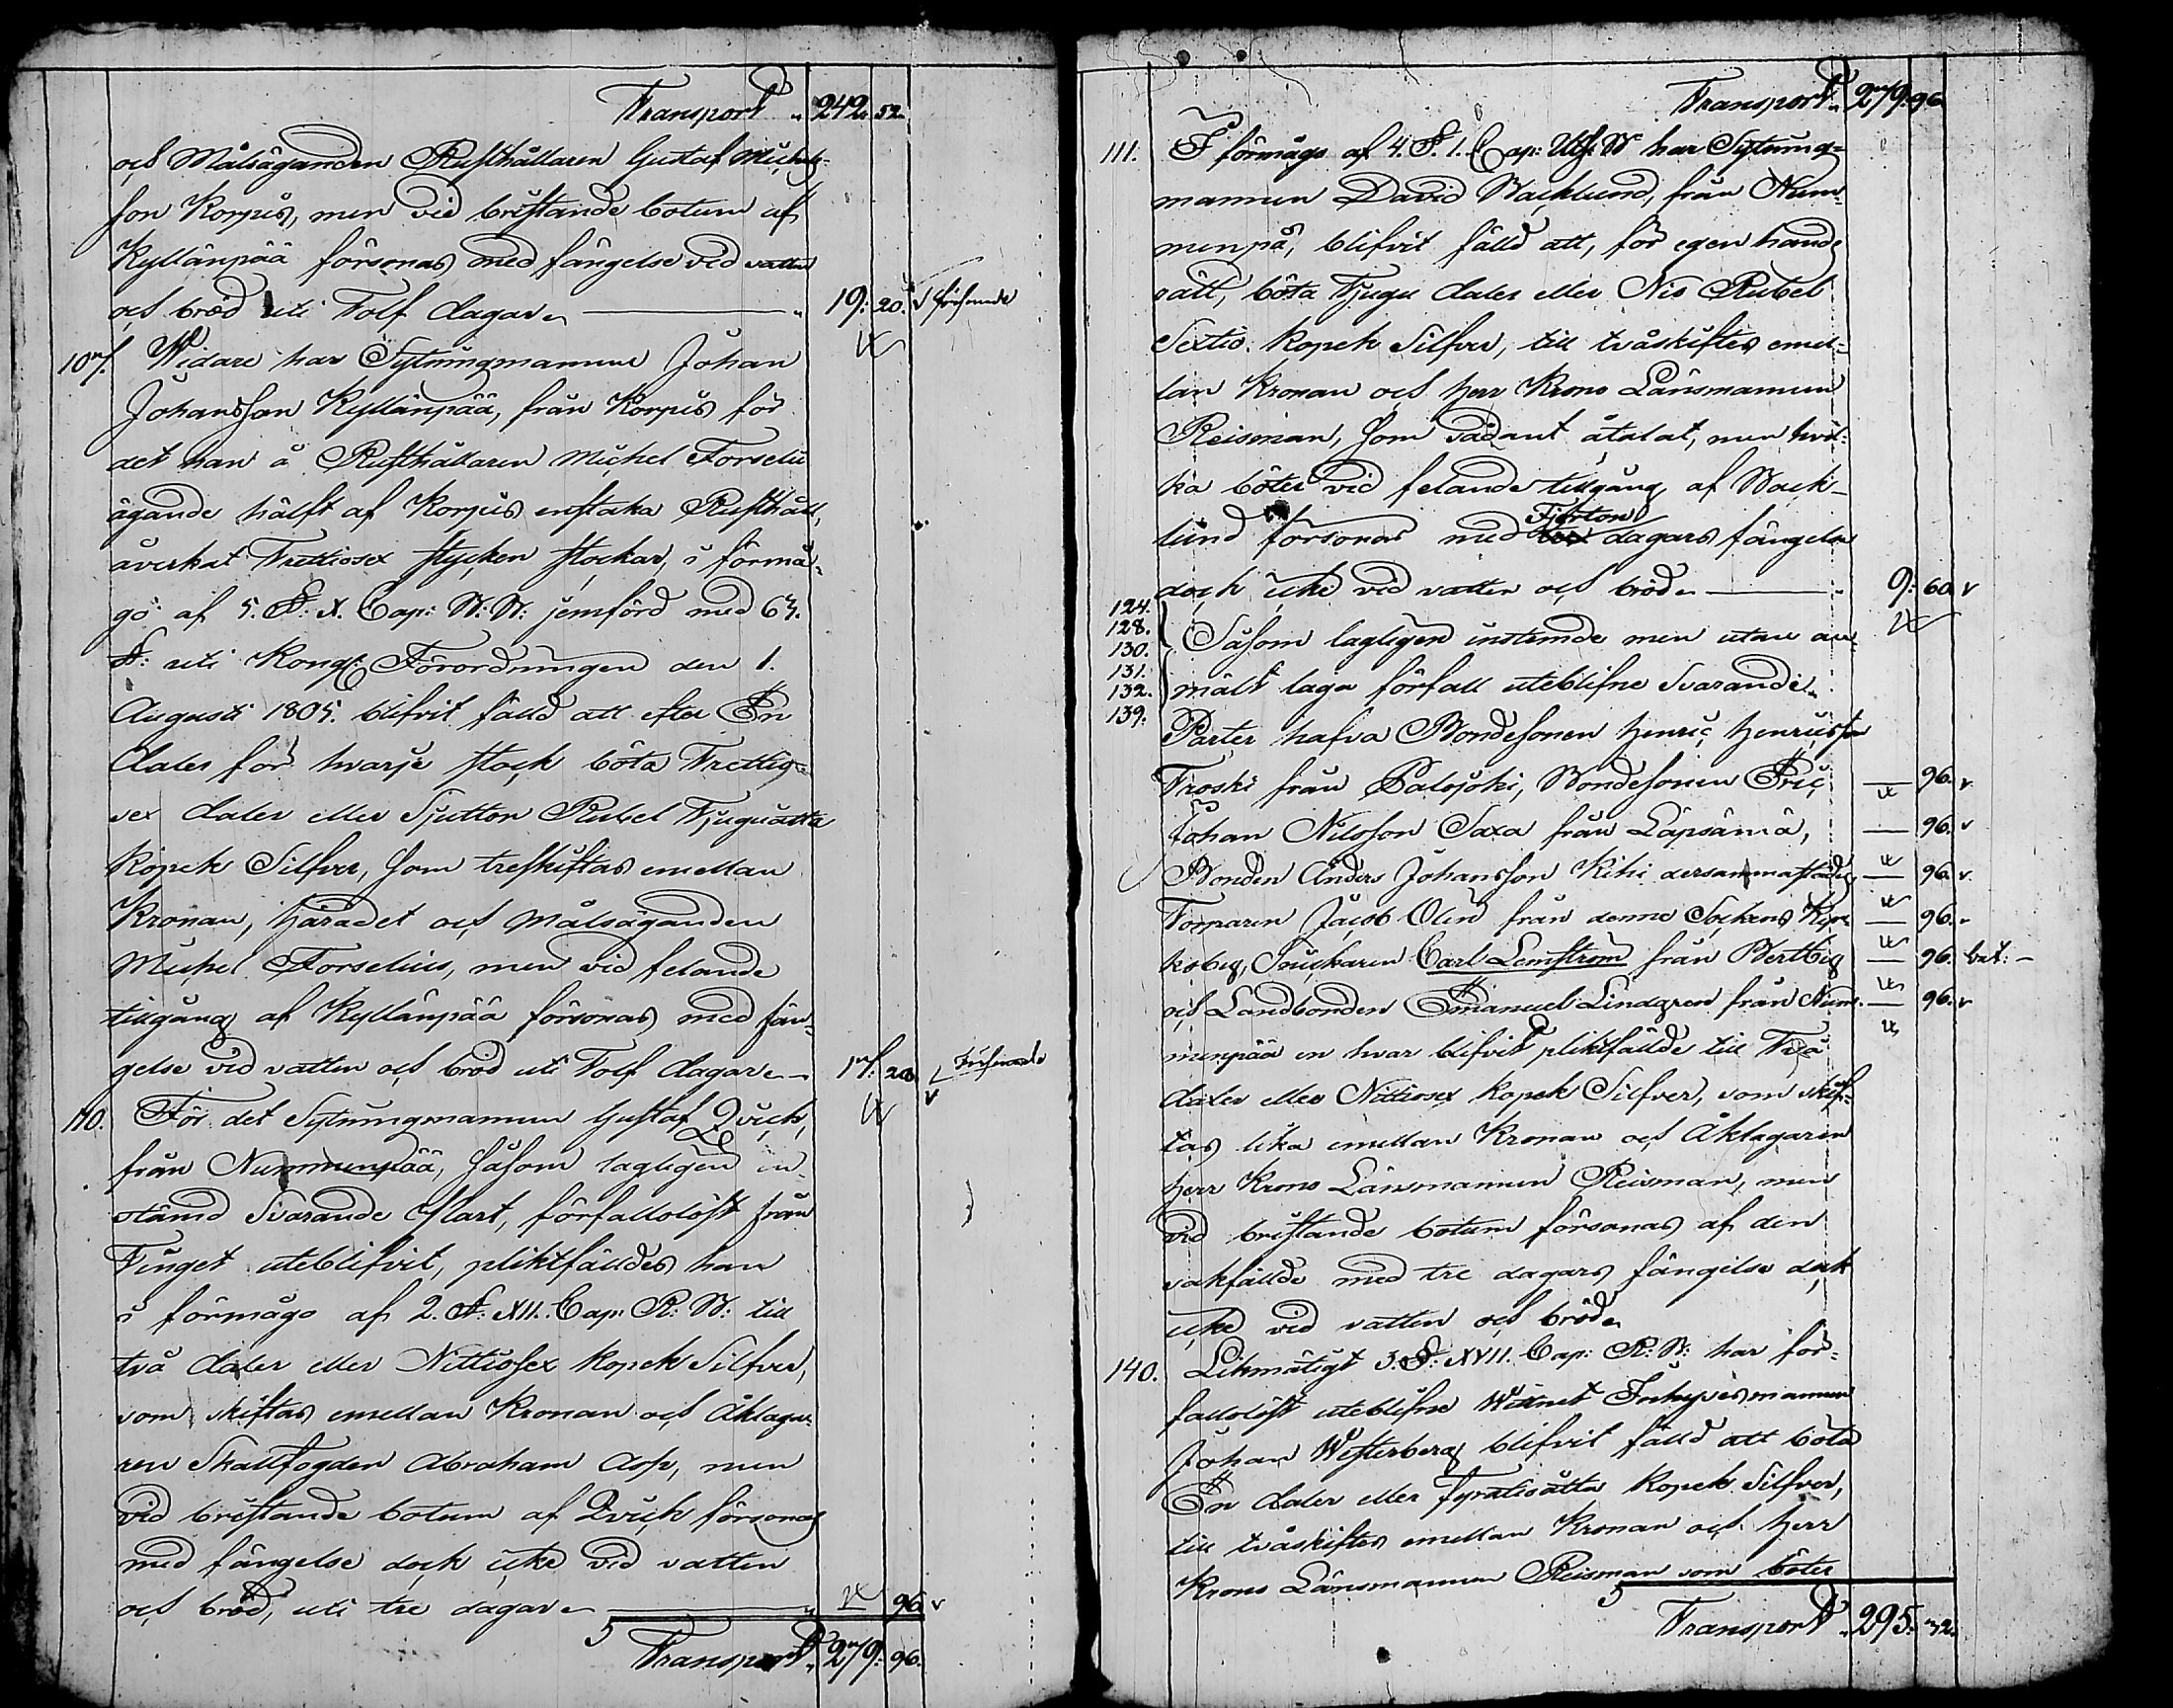 Transport " 242. 52.
och Målsäganden Rusthållaren Gustaf Michels-
son Korpus, men vid bristande botum af
Kyllänpää försonas med fängelse vid vatten
och bröd uti Tolf dagar. — " 19: 20. v försonade
107. Widare har Sytningmannen Johan
Johansson Kyllänpää, från Korpus för
det han å Rusthållaren Michel Forselii
ägande hälft af Korpus enstaka Rusthåll,
åverkat Trettiosex stycken stockar, i förmå-
go af 5. §. X. Cap: B: B: jemförd med 63.
§: uti Kongl: Förordningen den 1.
Augusti 1805. blifvit fälld att efter En
daler för hvarje stock böta Trettio-
sex daler eller Sjutton Rubel Tjuguåtta
kopek Silfver, som treskiftas emellan
Kronan, häradet och Målsäganden
Michel Forselius, men vid felande
tillgång af Kyllänpää försonas med fän-
gelse vid vatten och bröd uti Tolf dagar. — 17: 28. v Försonade
110. För det Sytningmannen Gustaf Qvick,
från Nummenpää, såsom lagligen in-
stämd Svarande Part, förfallolöst från
Tinget uteblifvit, pliktfälldes han
i förmågo af 2. §: XII. Cap: R: B: till
två daler eller Nittiosex kopek Silfver,
som skiftas emellan Kronan och Åklaga-
ren Skallfogden Abraham Asp, men
vid bristande botum af Qvick försonas
med fängelse dock icke vid vatten
och bröd, uti tre dagar. — " — 96. v
Transport " 279. 96.
Transport " 279. 96.
111. I förmågo af 4. §. 1. Cap: Uts: B: har Sytning-
mannen David Wacklund, från Num-
menpä, blifvit fälld att, för egen hands
rätt, böta Tjugu daler eller Nio Rubel
Sextio kopek Silfver, till tvåskiftes emel-
lan Kronan och Herr Krono Länsmannen
Reisman, som sådant åtalat, men hvil-
ka böter vid felande tillgång af Wack-
Fjorton
lund försonas med tre dagars fängelse
dock icke vid vatten och bröd. — " 9: 60. v
124.
128.
130.
131.
132.
139.
Såsom lagligen instemde men utan an-
mält laga förfall uteblifne Svarande
Parter hafva Bondesonen Henric Henricsson
Troski från Palojoki, Bondesonen Eric — 96. v
Johan Nilsson Saxa från Läpsämä, — 96. v
Bonden Anders Johansson Kihi dersammastädes — 96. v
Torparen Jacob Olin från denne Sockens Kyr- — 96. v
koby, Snickaren Carl Lemström från Bertby — 96. bet: –
och Landbonden Emanuel Lindgren från Num- — 96. v
menpää en hvar blifvit pliktfällde till Två
daler eller Nittiosex kopek Silfver, som skif-
tas lika emellan Kronan och Åklagaren
Herr Krono Länsmannen Reisman, men
vid bristande botum försonas af den
sakfällde med tre dagars fängelse dock
icke vid vatten och bröd.
140. Likmätigt 3. §: XVII. Cap: R: B: har för-
fallolöst uteblifne Wittnet Inhysesmannen
Johan Westerberg blifvit fälld att böta
En daler eller fyratioåtta kopek Silfver,
till tvåskiftes emellan Kronan och Herr
Krono Länsmannen Reisman som böter
Transport " 295. 32.